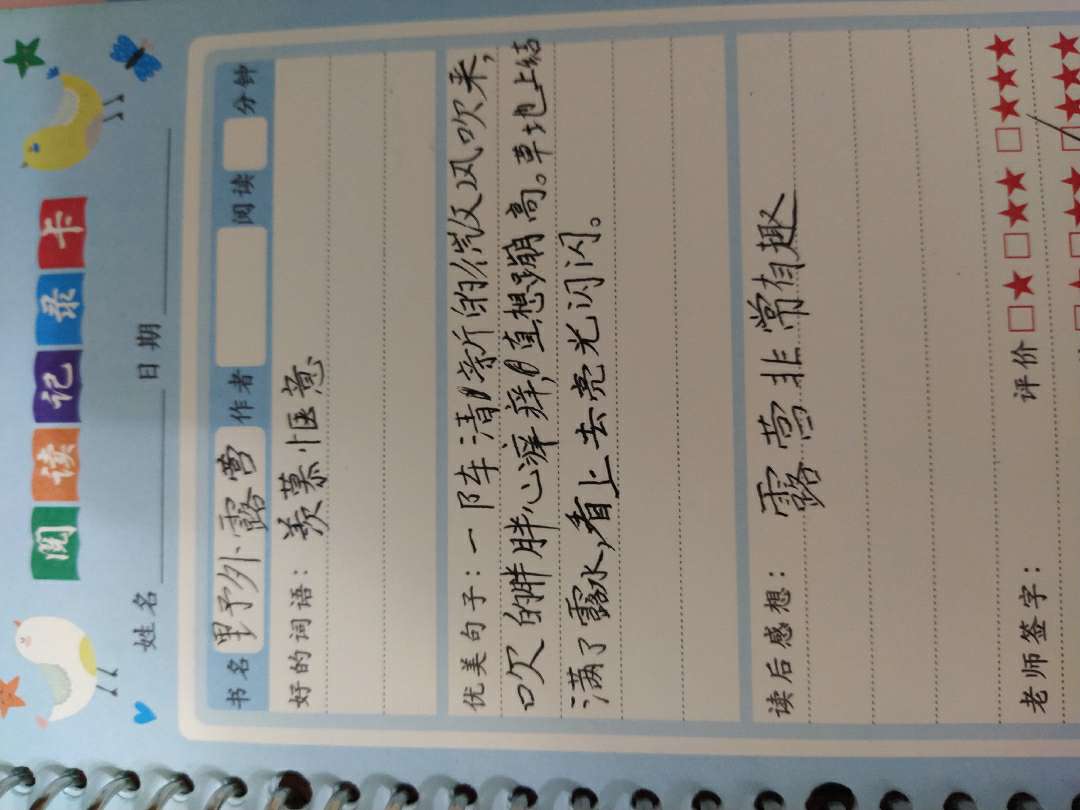 阅读记录卡
姓名 日期
书名 野外露营 作者 阅读 分钟
好的词语： 羡慕 惬意
优美句子：一阵清新的微风吹来，
吹的胖胖心痒痒，直想蹦高。草地上结
满了露水，看上去亮光闪闪。
读后感想：
露营非常有趣
老师签字： 评价 □★ □★★ □★★★